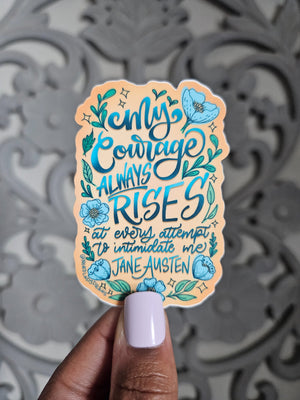 my
Courage
ALWAYS
RISES
at every attempt
to intimidate me
JANE AUSTEN